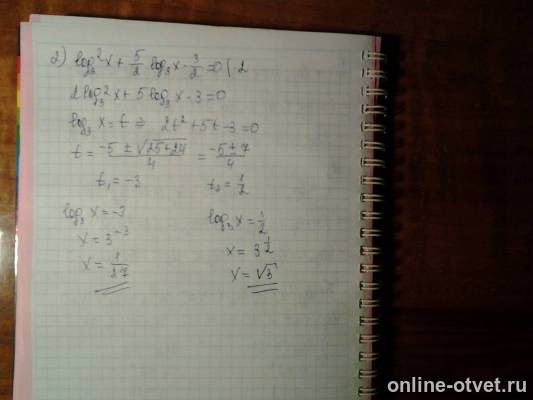 2) log₃²x + 5/2 log₃x - 3/2 = 0 | ·2
2log₃²x + 5log₃x - 3 = 0
log₃x = t ⇒ 2t² + 5t - 3 = 0
t = (-5 ± √25+24)/4 = (-5 ± 7)/4
t₁ = -3 t₂ = 1/2
log₃x = -3 log₃x = 1/2
x = 3⁻³ x = 3^(1/2)
x = 1/27 x = √3
online-otvet.ru